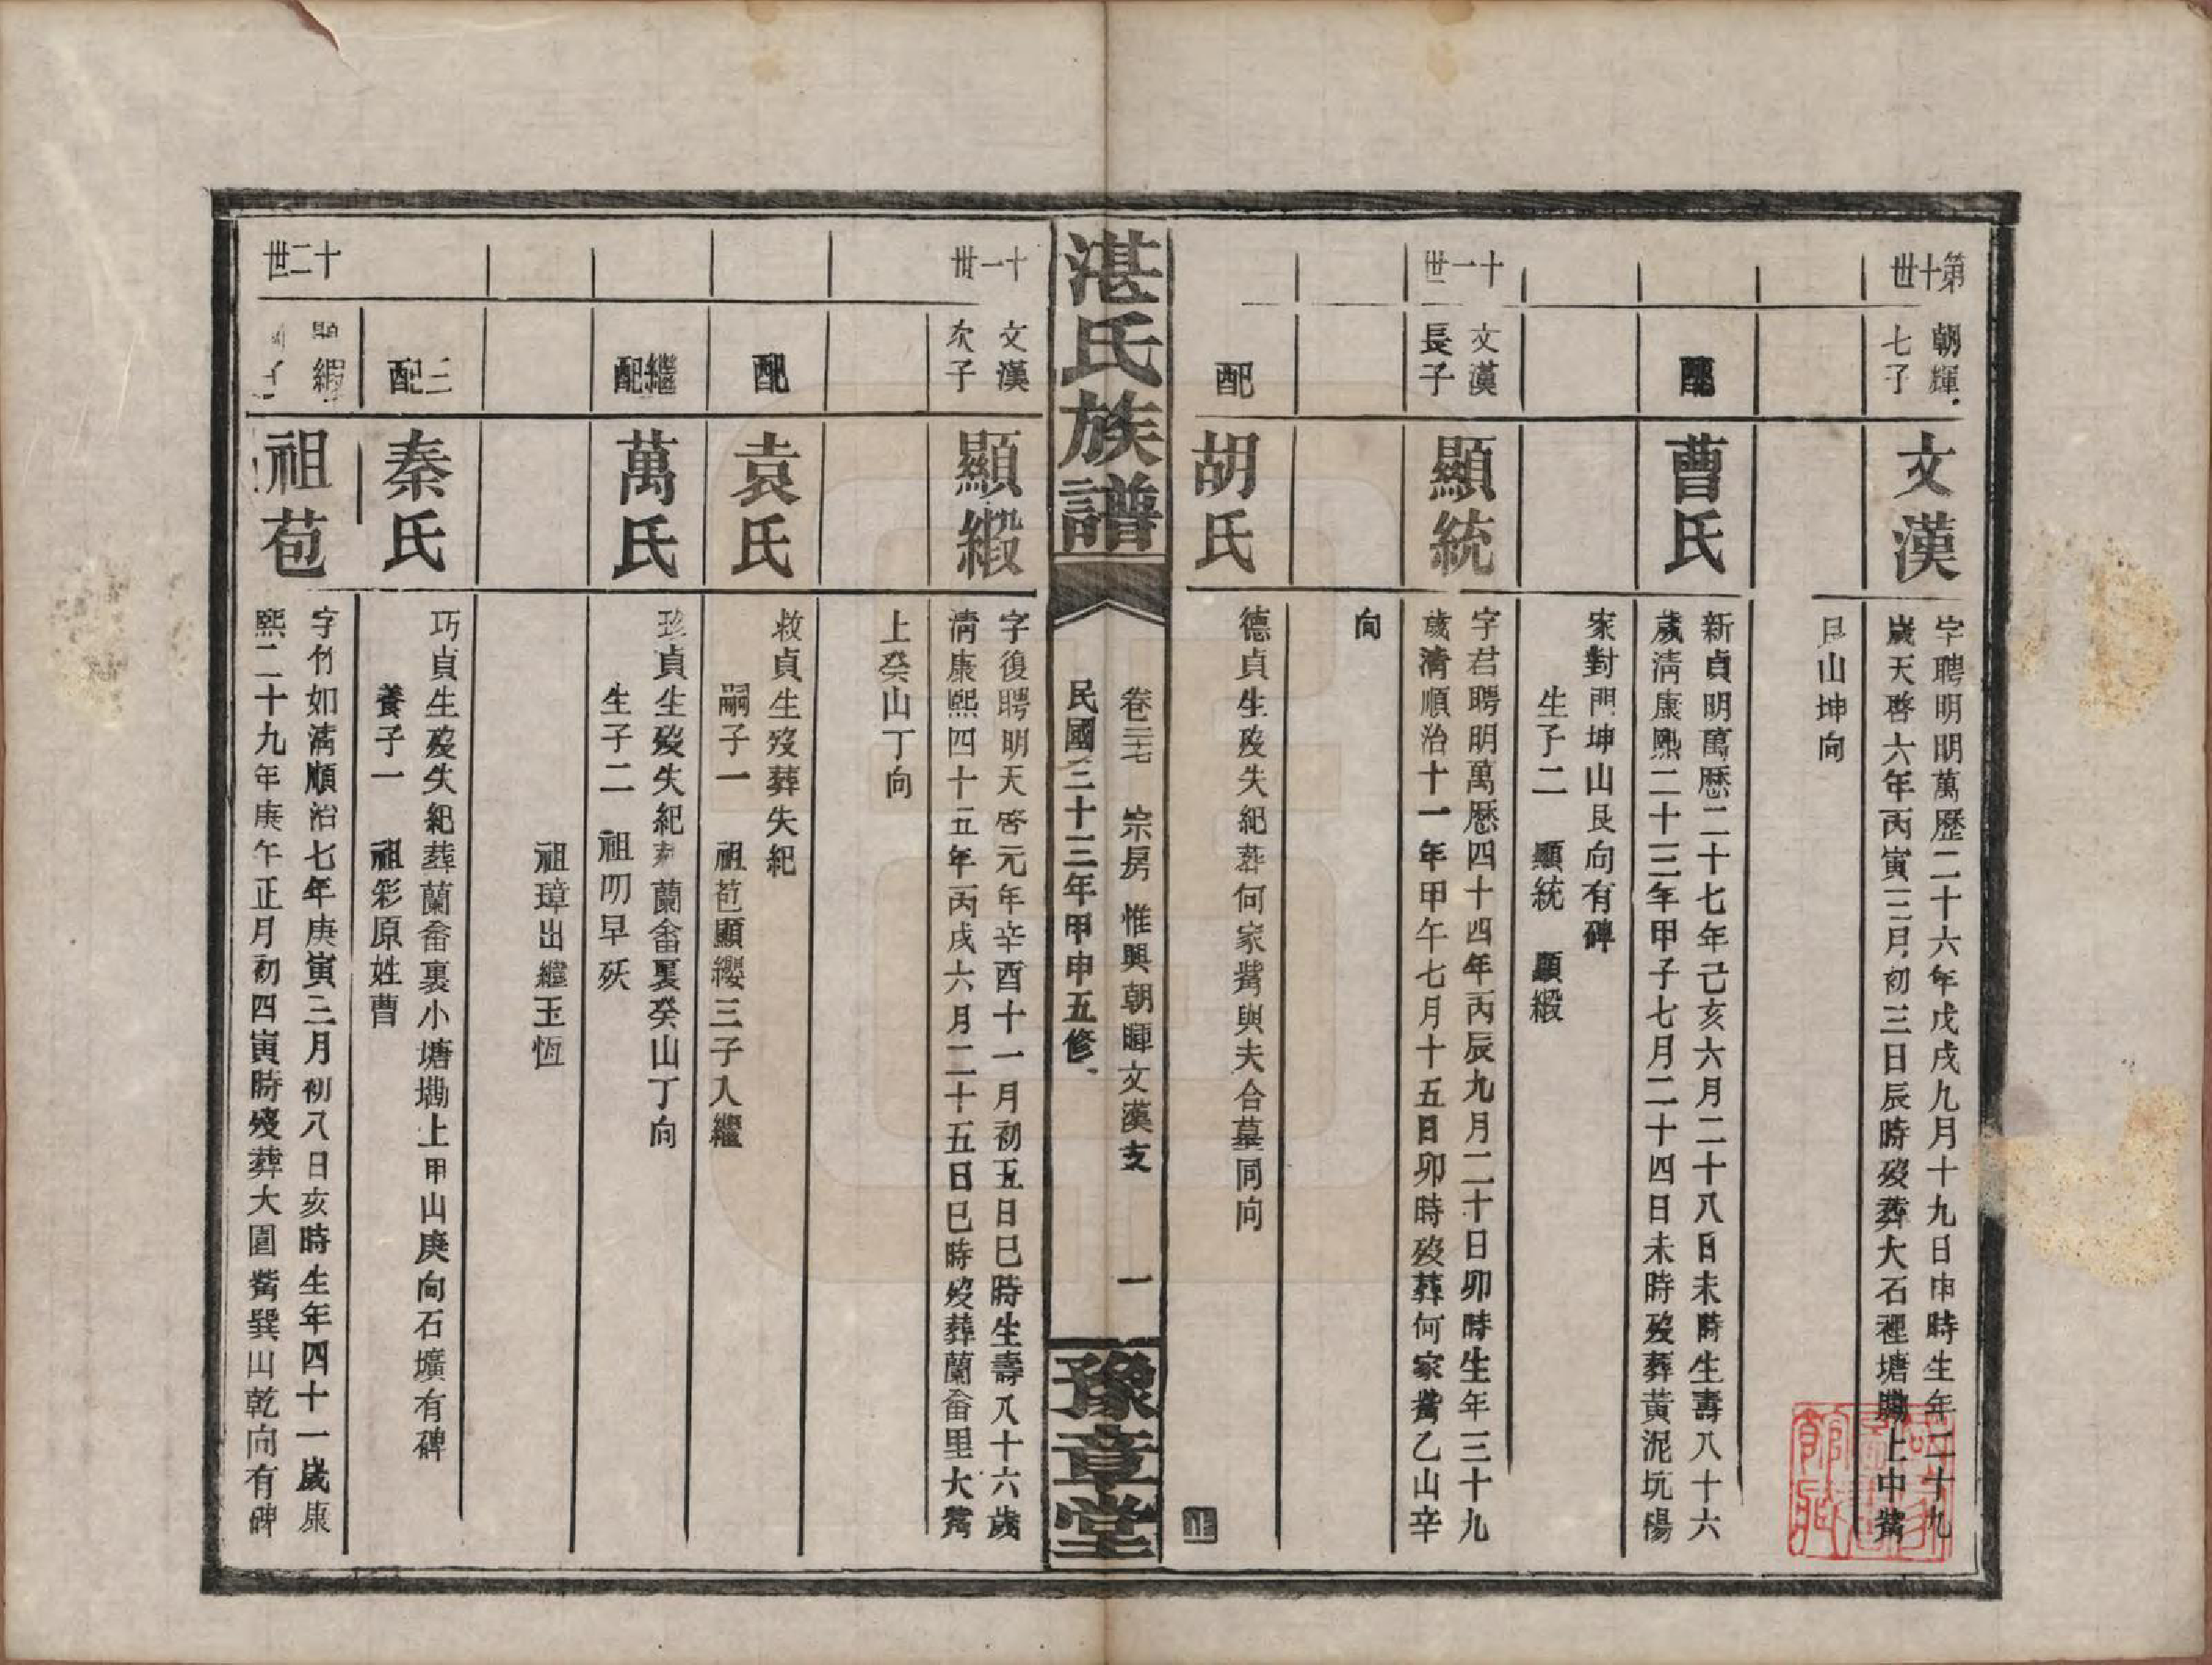 第十世
朝輝七子
文漢
字聘明明萬歷二十六年戊戌九月十九日申時生年二十九
歲天啓六年丙寅三月初三日辰時歿葬大石裡塘塍上中嘴
艮山坤向
配
曹氏
新貞明萬歷二十七年己亥六月二十八日未時生壽八十六
歲清康熙二十三年甲子七月二十四日未時歿葬黃泥坑楊
家對門坤山艮向有碑
生子二 顯統 顯緞
十一世
文漢長子
顯統
字君聘明萬歷四十四年丙辰九月二十日卯時生年三十九
歲清順治十一年甲午七月十五日卯時歿葬何家嘴乙山辛
向
配
胡氏
德貞生歿失紀葬何家嘴與夫合墓同向
湛氏族譜
卷三七 宗房 惟興朝暉文漢支 一
民國三十三年甲申五修
豫章堂
十一世
文漢次子
顯緞
字復聘明天啓元年辛酉十一月初五日巳時生壽八十六歲
清康熙四十五年丙戌六月二十五日巳時歿葬蘭畬里大嘴
上癸山丁向
配
袁氏
救貞生歿葬失紀
嗣子一 祖苞顯纓三子入繼
繼配
萬氏
珍貞生歿失紀葬蘭畬裏癸山丁向
生子二 祖叨早殀
祖璋出繼玉恆
三配
秦氏
巧貞生歿失紀葬蘭畬裏小塘塝上甲山庚向石壙有碑
養子一 祖彩原姓曹
十二世
顯緞
祖苞
字竹如清順治七年庚寅三月初八日亥時生年四十一歲康
熙二十九年庚午正月初四寅時歿葬大圍嘴巽山乾向有碑